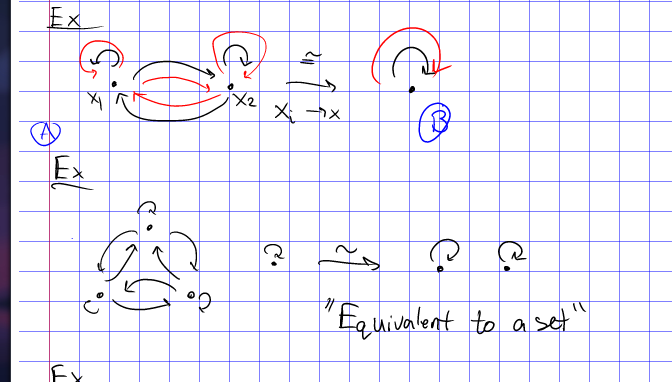 Ex
≅
x₁ x₂ xᵢ → x
A B
Ex
~
"Equivalent to a set"
Ex